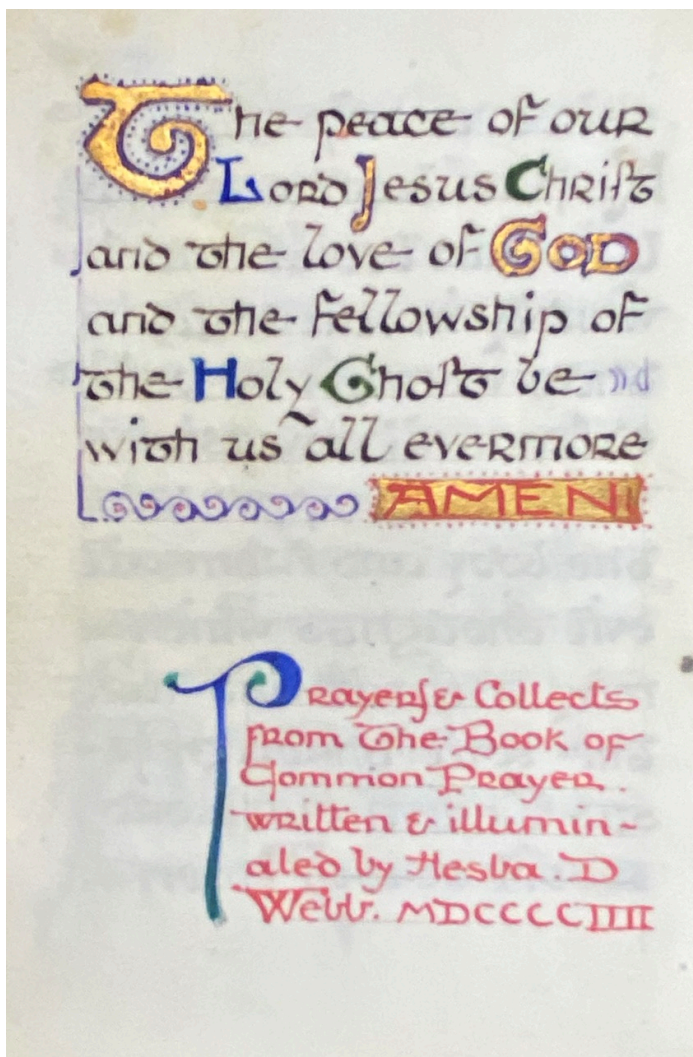 The peace of our
Lord Jesus Christ
and the love of GOD
and the fellowship of
the Holy Ghost be
with us all evermore
AMEN
Prayers & Collects
from The Book of
Common Prayer.
written & illumin~
ated by Hesba. D
Webb. MDCCCCIIII